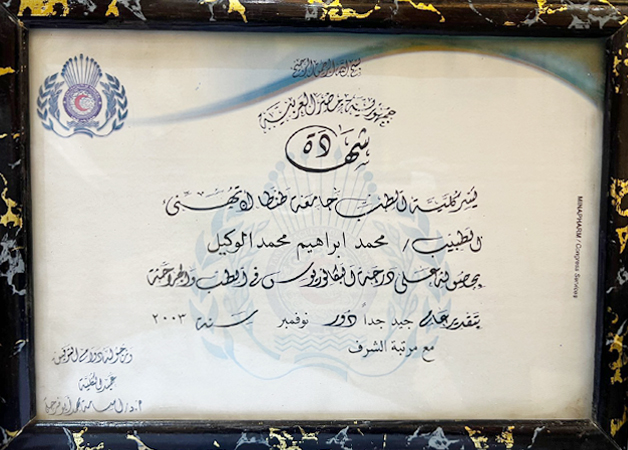 بسم الله الرحمن الرحيم
جمهورية مصر العربية
شهادة
يسر كلية الطب جامعة طنطا أن تهنئ
الطبيب / محمد ابراهيم محمد الوكيل
بحصوله على درجة البكالوريوس في الطب والجراحة
بتقدير عام جيد جداً دور نوفمبر سنة ٢٠٠٣
مع مرتبة الشرف
عميد الكلية
MINAPHARM / Congress Services